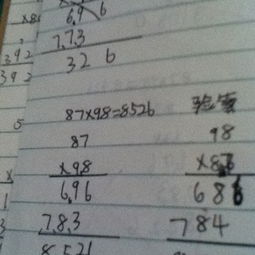 6.9 6
7.7 3
3 2 6
3 9 2
3 9 2
87×98=8526
87
×98
6,96
7,8,3
8521
验算
98
×87
686
784